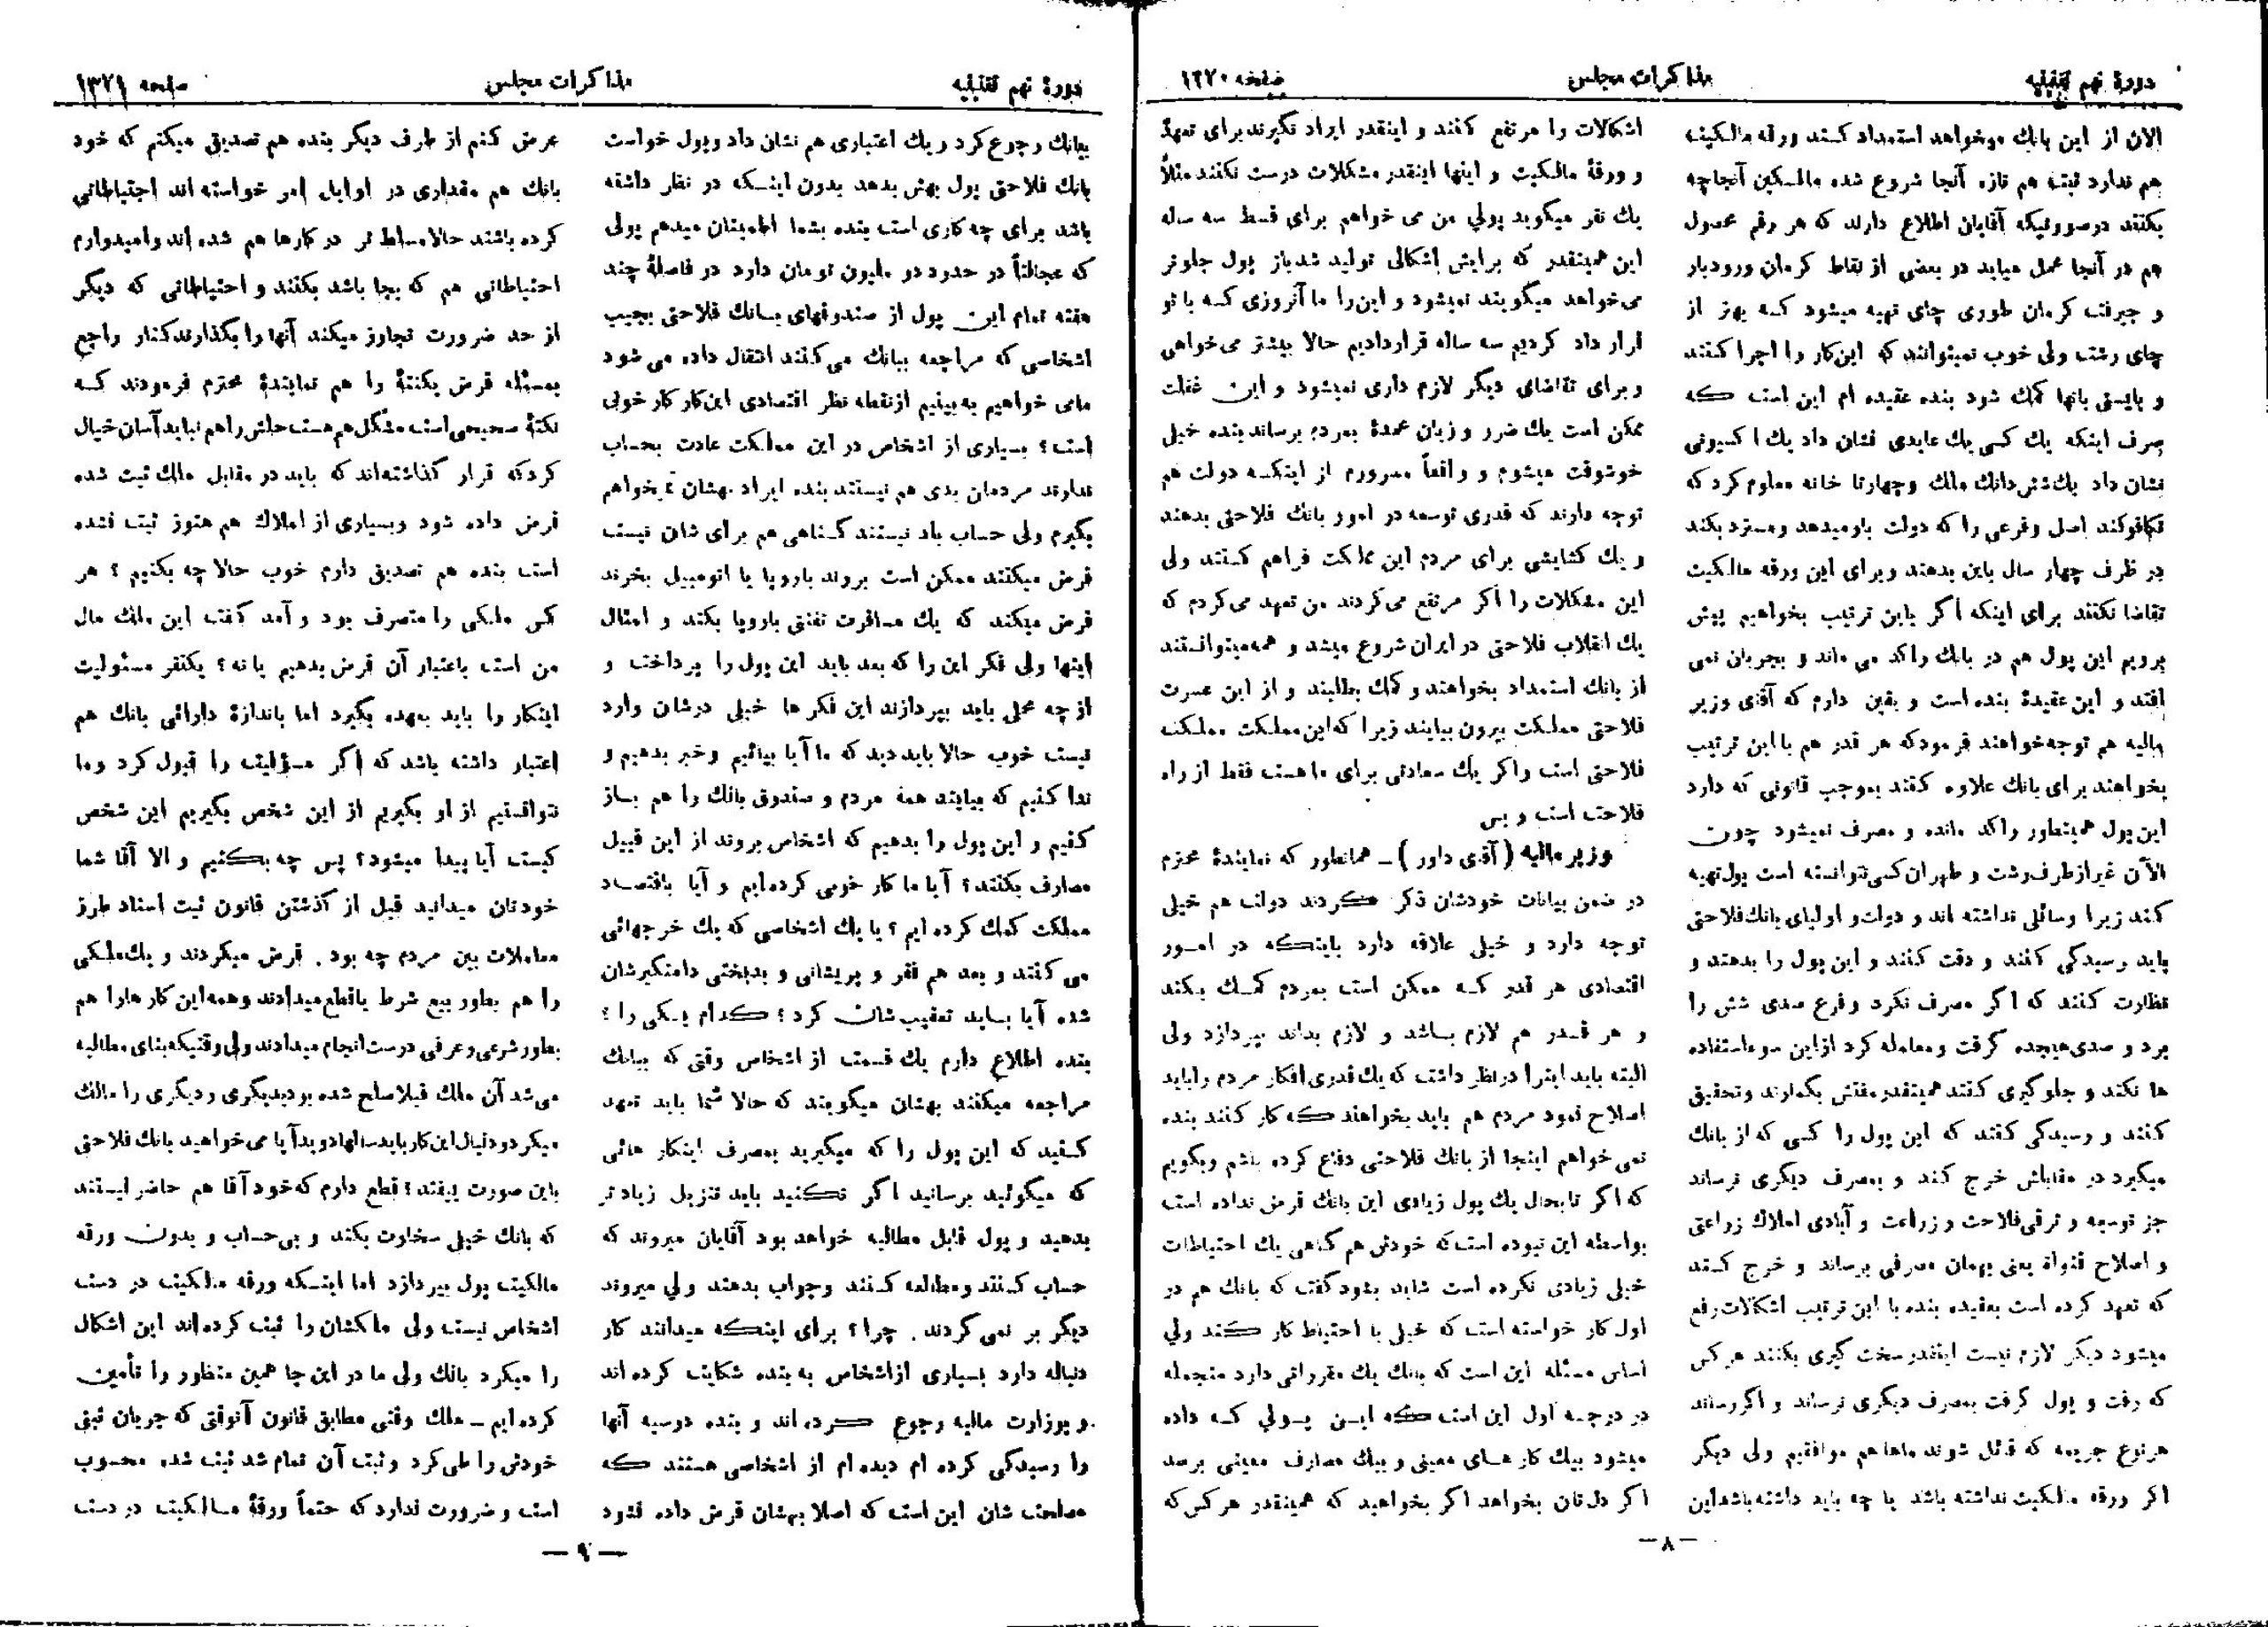 دورهٔ نهم تقنینیه
مذاکرات مجلس
صفحه ۱۳۷۰
الان از این بانك میخواهد استمداد کند ورقه مالکیت
هم ندارد ثبت هم تازه آنجا شروع شده مالکین آنجا چه
بکنند در صورتیکه آقایان اطلاع دارند که هر رقم محصول
هم در آنجا عمل میاید در بعضی از نقاط کرمان ورودبار
و جیرفت کرمان طوری چای تهیه میشود که بهتر از
چای رشت ولی خوب نمیتوانند که این کار را اجرا کنند
و بایستی بانها کمك شود بنده عقیده ام این است که
صرف اینکه یك کسی یك عایدی نشان داد یك اکسیونی
نشان داد یك شش دانك ملك و چهارتا خانه معلوم کرد که
تکافو کند اصل وفرعی را که دولت باو میدهد ومسترد بکند
در ظرف چهار سال باین بدهند و برای این ورقه مالکیت
تقاضا نکنند برای اینکه اگر باین ترتیب بخواهیم پیش
برویم این پول هم در بانك راکد می ماند و بجریان نمی
افتد و این عقیدهٔ بنده است و یقین دارم که آقای وزیر
مالیه هم توجه خواهند فرمود که هر قدر هم با این ترتیب
بخواهند برای بانك علاوه کنند بموجب قانونی که دارد
این پول همینطور راکد مانده و مصرف نمیشود چون
الآن غیر از طرف رشت و طهران کسی نتوانسته است پول تهیه
کند زیرا وسائلی نداشته اند و دولت و اولیای بانك فلاحتی
باید رسیدگی کنند و دقت کنند و این پول را بدهند و
نظارت کنند که اگر مصرف نکرد و فرع صدی شش را
برد و صدی هیجده گرفت و معامله کرد از این سوءاستفاده
ها نکند و جلوگیری کنند همینقدر مفتش بگمارند و تحقیق
کنند و رسیدگی کنند که این پول را کسی که از بانك
میگیرد در مقابلش خرج کند و بمصرف دیگری نرساند
جز توسعه و ترقی فلاحت و زراعت و آبادی املاك زراعتی
و اصلاح قنواة یعنی بهمان مصرفی برساند و خرج کند
که تعهد کرده است بعقیده بنده با این ترتیب اشکالات رفع
میشود دیگر لازم نیست اینقدر سخت گیری بکنند هر کس
که رفت و پول گرفت بمصرف دیگری نرساند و اگر رساند
هر نوع جریمه که قائل شوند ماها هم موافقیم ولی دیگر
اگر ورقه مالکیت نداشته باشد یا چه باید داشته باشد این
اشکالات را مرتفع کنند و اینقدر ایراد نگیرند برای تعهد
و ورقهٔ مالکیت و اینها اینقدر مشکلات درست نکنند مثلاً
یك نفر میگوید پولی من می خواهم برای قسط سه ساله
این همینقدر که برایش اشکالی تولید شد باز پول جلوتر
می خواهد میگویند نمیشود و این را ما آنروزی که با تو
قرار داد کردیم سه ساله قراردادیم حالا بیشتر می خواهی
و برای تقاضای دیگر لازم داری نمیشود و این غفلت
ممکن است یك ضرر و زیان عمدهٔ بمردم برساند بنده خیلی
خوشوقت میشوم و واقعاً مسرورم از اینکه دولت هم
توجه دارند که قدری توسعه در امور بانك فلاحتی بدهند
و یك گشایشی برای مردم این مملکت فراهم کنند ولی
این مشکلات را اگر مرتفع می کردند من تعهد می کردم که
یك انقلاب فلاحتی در ایران شروع میشد و همه میتوانستند
از بانك استمداد بخواهند و کمك بطلبند و از این عسرت
فلاحتی مملکت بیرون بیایند زیرا که این مملکت مملکت
فلاحتی است و اگر یك سعادتی برای ما هست فقط از راه
فلاحت است و بس
وزیر مالیه (آقای داور) ـ همانطور که نمایندهٔ محترم
در ضمن بیانات خودشان ذکر کردند دولت هم خیلی
توجه دارد و خیلی علاقه دارد باینکه در امور
اقتصادی هر قدر که ممکن است بمردم کمك بکند
و هر قدر هم لازم باشد و لازم بداند بپردازد ولی
البته باید اینرا در نظر داشت که یك قدری افکار مردم را باید
اصلاح نمود مردم هم باید بخواهند که کار کنند بنده
نمی خواهم اینجا از بانك فلاحتی دفاع کرده باشم و بگویم
که اگر تابحال یك پول زیادی این بانك قرض نداده است
بواسطه این نبوده است که خودش هم گاهی یك احتیاطات
خیلی زیادی نکرده است شاید بشود گفت که بانك هم در
اول کار خواسته است که خیلی با احتیاط کار کند ولی
اساس مسئله این است که بانك یك مقرراتی دارد منجمله
در درجه اول این است که این پولی که داده
میشود بیك کار های معینی و بیك مصارف معینی برسد
اگر دلتان بخواهد اگر بخواهید که همینقدر هر کس که
ـ ۸ ـ
دورهٔ نهم تقنینیه
مذاکرات مجلس
صفحه ۱۳۷۱
ببانك رجوع کرد و یك اعتباری هم نشان داد و پول خواست
بانك فلاحتی پول بهش بدهد بدون اینکه در نظر داشته
باشد برای چه کاری است بنده بشما اطمینان میدهم پولی
که عجالتاً در حدود دو ملیون تومان دارد در فاصلهٔ چند
هفته تمام این پول از صندوقهای بانك فلاحتی بجیب
اشخاصی که مراجعه ببانك می کنند انتقال داده می شود
مامی خواهیم به بینیم از نقطه نظر اقتصادی این کار کار خوبی
است؟ بسیاری از اشخاص در این مملکت عادت بحساب
ندارند مردمان بدی هم نیستند بنده ایراد بهشان نمیخواهم
بگیرم ولی حساب یاد نیستند گناهی هم برای شان نیست
قرض میکنند ممکن است بروند باروپا یا اتومبیل بخرند
قرض میکند که یك مسافرت تفننی باروپا بکند و امثال
اینها ولی فکر این را که بعد باید این پول را پرداخت و
از چه محلی باید بپردازند این فکر ها خیلی درشان وارد
نیست خوب حالا باید دید که ما آیا بیائیم وخبر بدهیم و
ندا کنیم که بیایند همهٔ مردم و صندوق بانك را هم باز
کنیم و این پول را بدهیم که اشخاص بروند از این قبیل
مصارف بکنند؟ آیا ما کار خوبی کرده‌ایم و آیا باقتصاد
مملکت کمك کرده ایم؟ یا یك اشخاصی که یك خرجهائی
می کنند و بعد هم فقر و پریشانی و بدبختی دامنگیرشان
شده آیا باید تعقیب شان کرد؟ کدام یکی را؟
بنده اطلاع دارم یك قسمت از اشخاص وقتی که ببانك
مراجعه میکنند بهشان میگویند که حالا شما باید تعهد
کنید که این پول را که میگیرید بمصرف اینکار هائی
که میگوئید برسانید اگر نکنید باید تنزیل زیادتر
بدهید و پول قابل مطالبه خواهد بود آقایان میروند که
حساب کنند و مطالعه کنند وجواب بدهند ولی میروند
دیگر بر نمی گردند . چرا؟ برای اینکه میدانند کار
دنباله دارد بسیاری از اشخاص به بنده شکایت کرده اند
و بوزارت مالیه رجوع کرده اند و بنده دوسیه آنها
را رسیدگی کرده ام دیده ام از اشخاصی هستند که
مصلحت شان این است که اصلا بهشان قرض داده نشود
عرض کنم از طرف دیگر بنده هم تصدیق میکنم که خود
بانك هم مقداری در اوایل امر خواسته اند احتیاطاتی
کرده باشند حالا مسلط تر در کارها هم شده اند وامیدوارم
احتیاطاتی هم که بجا باشد بکنند و احتیاطاتی که دیگر
از حد ضرورت تجاوز میکند آنها را بگذارند کنار راجع
بمسئله قرض یکنکتهٔ را هم نمایندهٔ محترم فرمودند که
نکتهٔ صحیحی است مشگل هم هست حلش را هم نباید آسان خیال
کرد که قرار گذاشته‌اند که باید در مقابل ملك ثبت شده
قرض داده شود وبسیاری از املاك هم هنوز ثبت نشده
است بنده هم تصدیق دارم خوب حالا چه بکنیم؟ هر
کس ملکی را متصرف بود و آمد گفت این ملك مال
من است باعتبار آن قرض بدهیم یا نه؟ یکنفر مسئولیت
اینکار را باید بعهده بگیرد اما باندازهٔ دارائی بانك هم
اعتبار داشته باشد که اگر مسؤلیت را قبول کرد وما
نتوانستیم از او بگیریم از این شخص بگیریم این شخص
کیست آیا پیدا میشود؟ پس چه بکنیم و الا آقا شما
خودتان میدانید قبل از گذشتن قانون ثبت اسناد طرز
معاملات بین مردم چه بود . قرض میکردند و یك ملکی
را هم بطور بیع شرط یا قطع میدادند و همه این کار ها را هم
بطور شرعی و عرفی درست انجام میدادند ولی وقتیکه بنای مطالبه
می شد آن ملك قبلا صلح شده بود بدیگری و دیگری را مالك
میکرد و دنبال این کار باید سالها دوید آیا می خواهید بانك فلاحتی
باین صورت بیفتد؟ قطع دارم که خود آقا هم حاضر نیستند
که بانك خیلی سخاوت بکند و بی حساب و بدون ورقه
مالکیت پول بپردازد اما اینکه ورقه مالکیت در دست
اشخاص نیست ولی ملکشان را ثبت کرده اند این اشکال
را میکرد بانك ولی ما در این جا همین منظور را تأمین
کرده ایم ـ ملك وقتی مطابق قانون آنوقتی که جریان ثبتی
خودش را طی کرد و ثبت آن تمام شد ثبت شده محسوب
است و ضرورت ندارد که حتماً ورقهٔ مالکیت در دست
ـ ۹ ـ